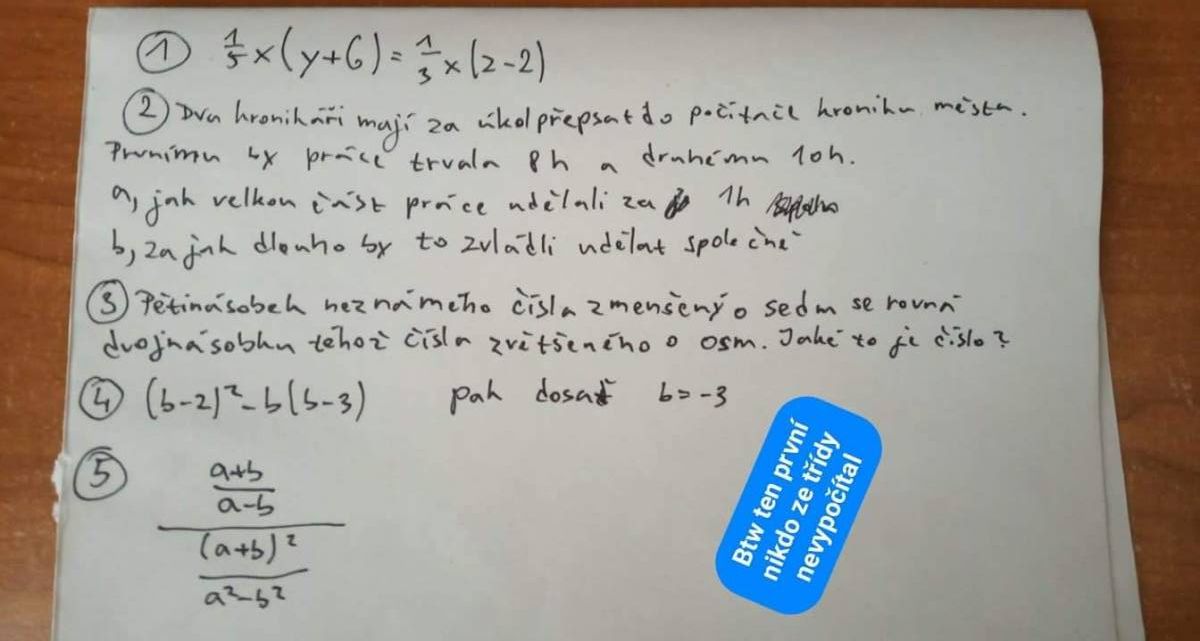 ① 1/5 x (y+6) = 1/3 x (z-2)
② Dva kronikáři mají za úkol přepsat do počítače kroniku města.
Prvnímu by práce trvala 8h a druhému 10h.
a, jak velkou část práce udělali za 1h
b, za jak dlouho by to zvládli udělat společně
③ Pětinásobek neznámého čísla zmenšený o sedm se rovná
dvojnásobku téhož čísla zvětšeného o osm. Jaké to je číslo?
④ (b-2)² - b(b-3) pak dosaď b = -3
⑤ a+b
a-b
(a+b)²
a²-b²
Btw ten první
nikdo ze třídy
nevypočítal